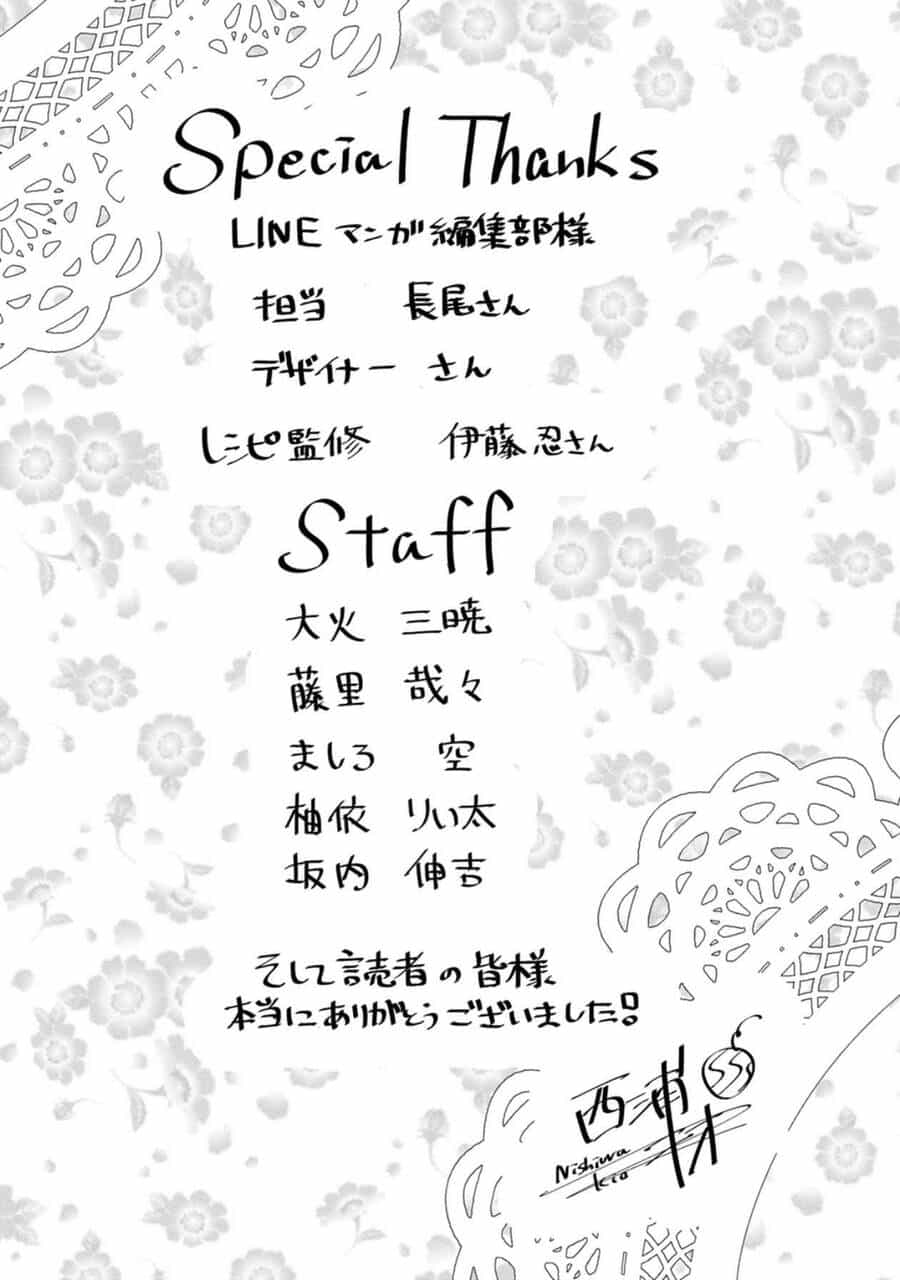 Special Thanks
LINE マンガ編集部様
担当 長尾さん
デザイナー さん
レシピ監修 伊藤忍さん
Staff
大火 三暁
藤里 哉々
ましろ 空
柚依 りい太
坂内 伸吉
そして読者の皆様
本当にありがとうございました!
西浦
Nishiura
kio